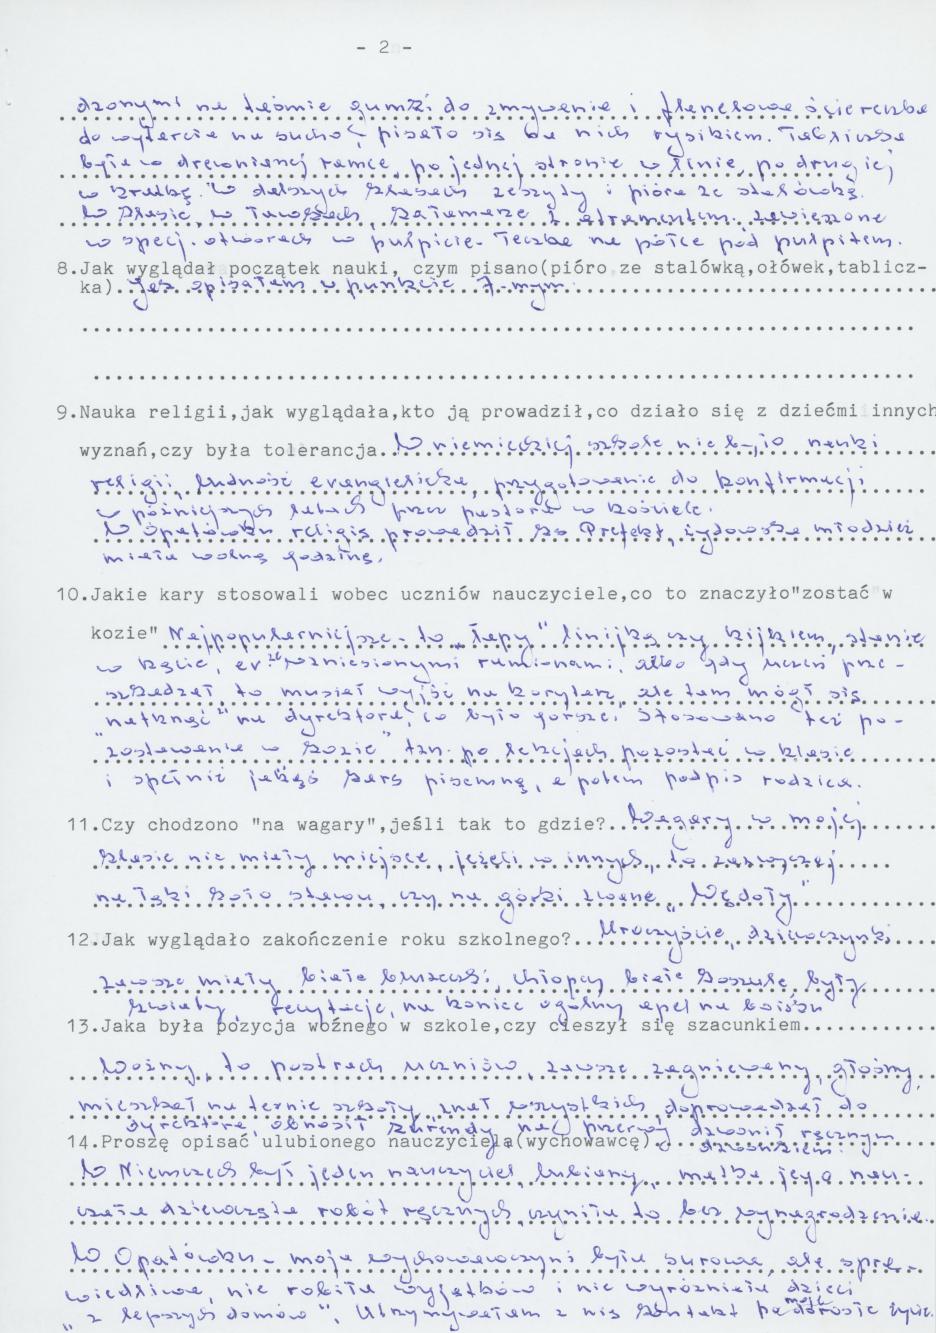 - 2 -
dzonymi na taśmie gumki do zmywania i flanelowa ściereczka
do wytarcia na sucho, pisało się na nich rysikiem. Tabliczka
była w drewnianej ramce, po jednej stronie w linie, po drugiej
w kratkę. W dalszych klasach zeszyty i pióra ze stalówką.
W klasie, w ławkach, kałamarze z atramentem zawieszone
w specj. otworach w pulpicie. Teczka na półce pod pulpitem.
8.Jak wyglądał początek nauki, czym pisano(pióro ze stalówką,ołówek,tablicz-
ka). Jak opisałem w punkcie 7-mym.
9.Nauka religii,jak wyglądała,kto ją prowadził,co działo się z dziećmi innych
wyznań,czy była tolerancja. W niemieckiej szkole nie było nauki
religii, ludność ewangielicka, przygotowanie do konfirmacji
w późniejszych latach przez pastora w kościele.
W Opatówku religię prowadził ks Prefekt, żydowska młodzież
miała wolną godzinę.
10.Jakie kary stosowali wobec uczniów nauczyciele,co to znaczyło"zostać w
kozie" Najpopularniejsze - to „łapy" linijką czy kijkiem, stanie
w kącie, ew. z wzniesionymi ramionami, albo gdy uczeń prze-
szkadzał, to musiał wyjść na korytarz, ale tam mógł się
„natknąć" na dyrektora, co było gorsze. Stosowano też po-
zostawanie w „kozie" tzn. po lekcjach pozostać w klasie
i spełnić jakąś karę pisemną, a potem podpis rodzica.
11.Czy chodzono "na wagary",jeśli tak to gdzie? Wagary w mojej
klasie nie miały miejsca, jeżeli w innych, to zazwyczaj
na łąki koło stawu, czy na górki zwane „Wądoły"
12.Jak wyglądało zakończenie roku szkolnego? Uroczyście, dziewczynki
zawsze miały białe bluzeczki, chłopcy białe koszule, były
kwiaty, recytacje, na koniec ogólny apel na boisku
13.Jaka była pozycja woźnego w szkole,czy cieszył się szacunkiem
Woźny, to postrach uczniów, zawsze zagniewany, głośny,
mieszkał na ternie szkoły, znał wszystkich, doprowadzał do
dyrektora, obnosił kurendy, na przerwy dzwonił ręcznym
14.Proszę opisać ulubionego nauczyciela(wychowawcę) dzwonkiem.
W Niemczech był jeden nauczyciel, lubiany, matka jego nau-
czała dziewczęta robót ręcznych, czyniła to bez wynagrodzenia.
W Opatówku - moja wychowawczyni była surowa, ale spra-
wiedliwa, nie robiła wyjątków i nie wyróżniała dzieci
„z lepszych domów". Utrzymywałem z nią kontakt po moje dorosłe życie.